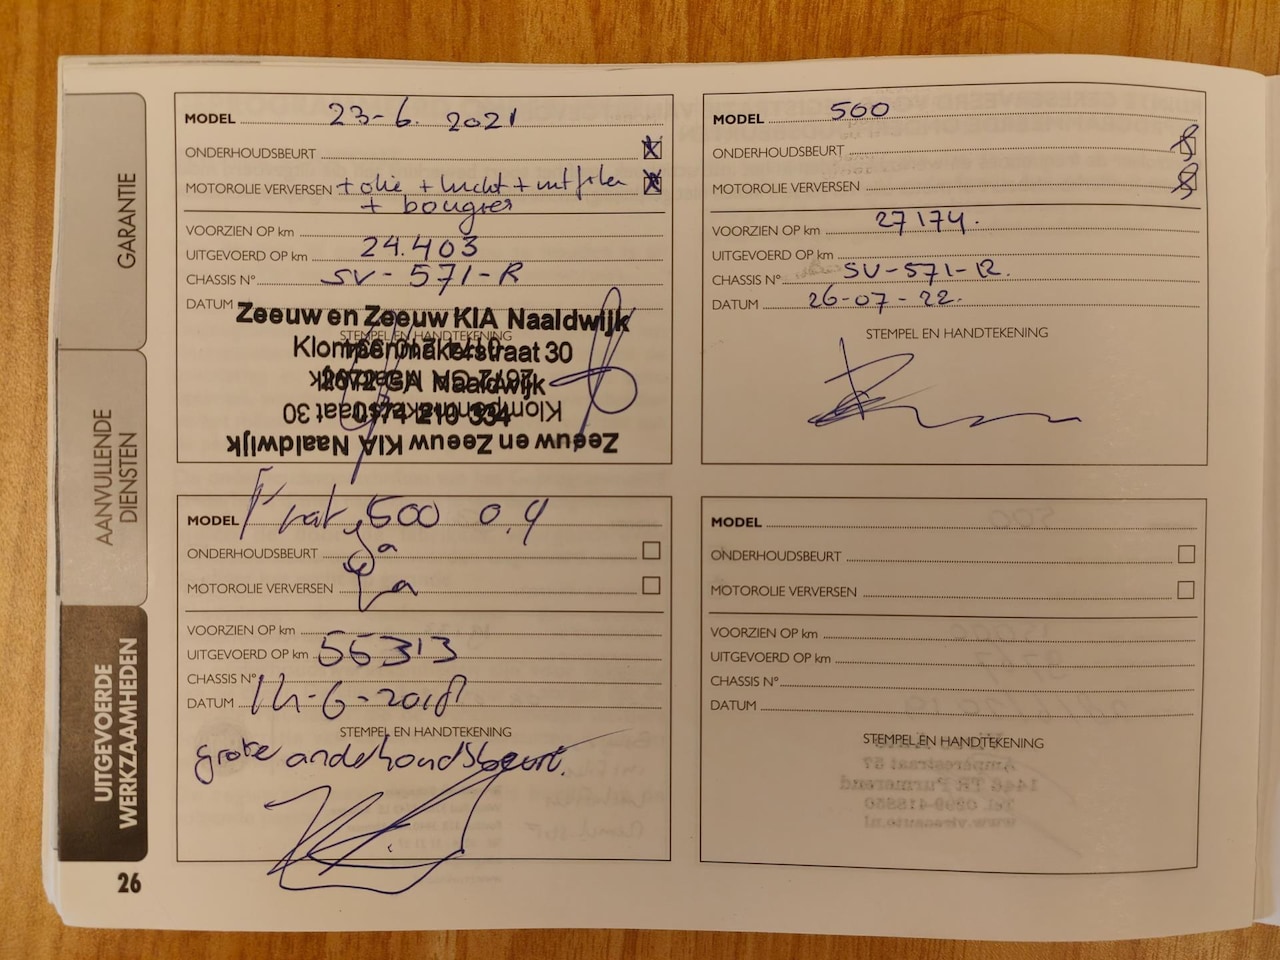 GARANTIE
AANVULLENDE DIENSTEN
UITGEVOERDE WERKZAAMHEDEN
26
MODEL 23-6. 2021
ONDERHOUDSBEURT X
MOTOROLIE VERVERSEN + olie + lucht + intfilter X
+ bougies
VOORZIEN OP km
UITGEVOERD OP km 24.403
CHASSIS N° SV-571-R
DATUM
Zeeuw en Zeeuw KIA Naaldwijk
STEMPEL EN HANDTEKENING
Klompenmakerstraat 30
2672 GA Naaldwijk
0174 210 334
Klompenmakerstraat 30
Zeeuw en Zeeuw KIA Naaldwijk
MODEL 500
ONDERHOUDSBEURT
MOTOROLIE VERVERSEN
VOORZIEN OP km 27174.
UITGEVOERD OP km
CHASSIS N° SV-571-R.
DATUM 26-07-22.
STEMPEL EN HANDTEKENING
MODEL Fiat 500 0.9
ONDERHOUDSBEURT Ja
MOTOROLIE VERVERSEN Ja
VOORZIEN OP km
UITGEVOERD OP km 55313
CHASSIS N°
DATUM 14-6-2018
STEMPEL EN HANDTEKENING
grote onderhoudsbeurt.
MODEL
ONDERHOUDSBEURT
MOTOROLIE VERVERSEN
VOORZIEN OP km
UITGEVOERD OP km
CHASSIS N°
DATUM
STEMPEL EN HANDTEKENING